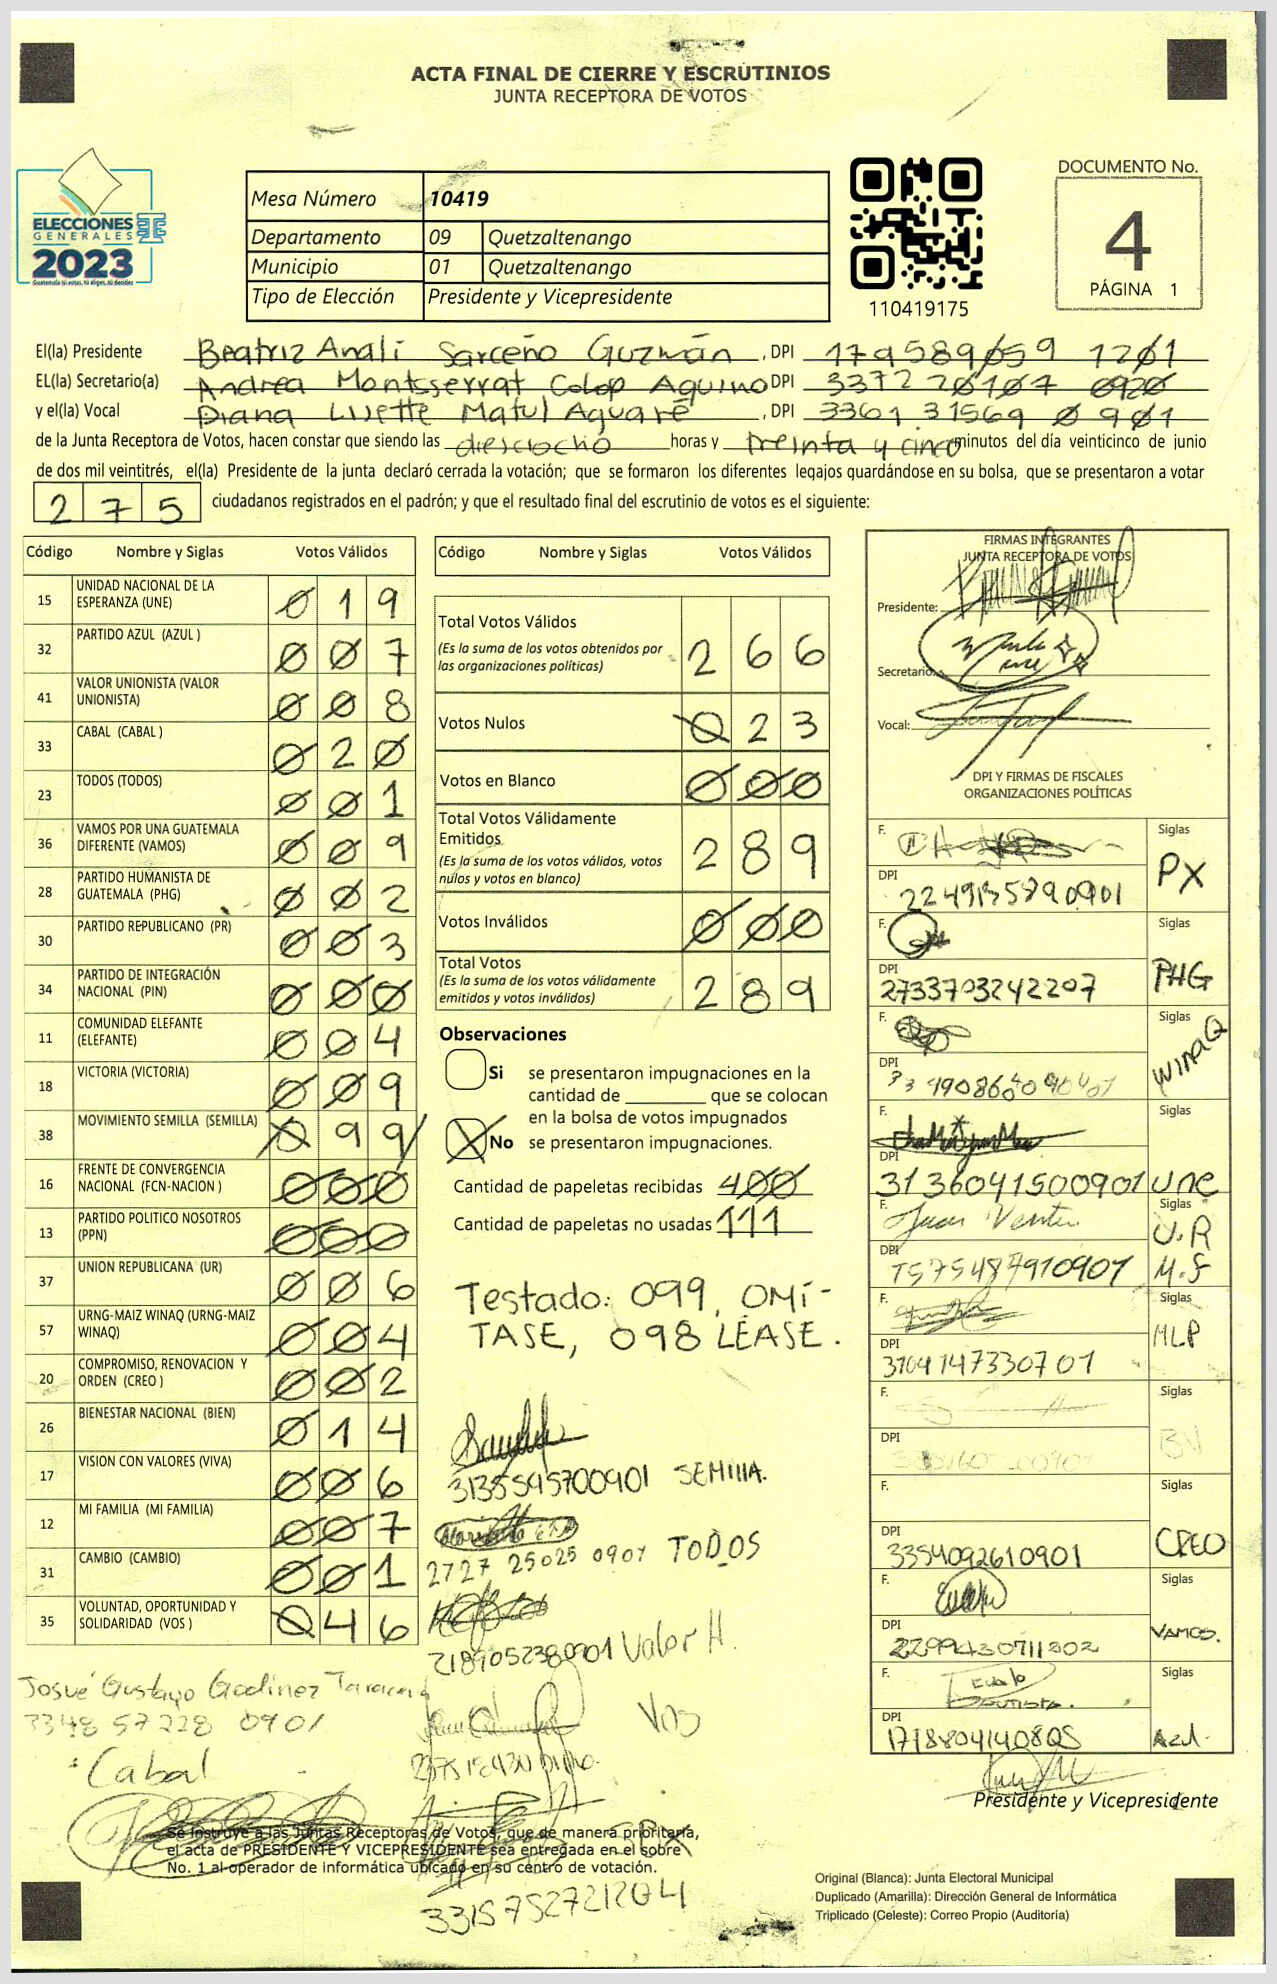 ACTA FINAL DE CIERRE Y ESCRUTINIOS
JUNTA RECEPTORA DE VOTOS
ELECCIONES
GENERALES
2023
Mesa Número 10419
Departamento 09 Quetzaltenango
Municipio 01 Quetzaltenango
Tipo de Elección Presidente y Vicepresidente
110419175
DOCUMENTO No.
4
PÁGINA 1
El(la) Presidente Beatriz Analí Sarceño Guzmán, DPI 179589059 1201
EL(la) Secretario(a) Andrea Montsserrat Colop Aguino DPI 3372 20107 0920
y el(la) Vocal Diana Lisette Matul Aguaré, DPI 3361 31569 0901
de la Junta Receptora de Votos, hacen constar que siendo las dieciocho horas y treinta y cinco minutos del día veinticinco de junio
de dos mil veintitrés, el(la) Presidente de la junta declaró cerrada la votación; que se formaron los diferentes legajos guardándose en su bolsa, que se presentaron a votar
275 ciudadanos registrados en el padrón; y que el resultado final del escrutinio de votos es el siguiente:
Código Nombre y Siglas Votos Válidos
15 UNIDAD NACIONAL DE LA ESPERANZA (UNE) 019
32 PARTIDO AZUL (AZUL ) 007
41 VALOR UNIONISTA (VALOR UNIONISTA) 008
33 CABAL (CABAL ) 020
23 TODOS (TODOS) 001
36 VAMOS POR UNA GUATEMALA DIFERENTE (VAMOS) 009
28 PARTIDO HUMANISTA DE GUATEMALA (PHG) 002
30 PARTIDO REPUBLICANO (PR) 003
34 PARTIDO DE INTEGRACIÓN NACIONAL (PIN) 000
11 COMUNIDAD ELEFANTE (ELEFANTE) 004
18 VICTORIA (VICTORIA) 009
38 MOVIMIENTO SEMILLA (SEMILLA) 099
16 FRENTE DE CONVERGENCIA NACIONAL (FCN-NACION ) 000
13 PARTIDO POLITICO NOSOTROS (PPN) 000
37 UNION REPUBLICANA (UR) 006
57 URNG-MAIZ WINAQ (URNG-MAIZ WINAQ) 004
20 COMPROMISO, RENOVACION Y ORDEN (CREO ) 002
26 BIENESTAR NACIONAL (BIEN) 014
17 VISION CON VALORES (VIVA) 006
12 MI FAMILIA (MI FAMILIA) 007
31 CAMBIO (CAMBIO) 001
35 VOLUNTAD, OPORTUNIDAD Y SOLIDARIDAD (VOS ) 046
Josué Gustavo Godinez Taracena
3348 57228 0901
Cabal
Código Nombre y Siglas Votos Válidos
Total Votos Válidos 266
(Es la suma de los votos obtenidos por
las organizaciones políticas)
Votos Nulos 023
Votos en Blanco 000
Total Votos Válidamente
Emitidos 289
(Es la suma de los votos válidos, votos
nulos y votos en blanco)
Votos Inválidos 000
Total Votos 289
(Es la suma de los votos válidamente
emitidos y votos inválidos)
Observaciones
Si se presentaron impugnaciones en la
cantidad de ________ que se colocan
en la bolsa de votos impugnados
No se presentaron impugnaciones.
Cantidad de papeletas recibidas 400
Cantidad de papeletas no usadas 111
Testado: 099, OMí-
TASE, 098 LÉASE.
3135595700901 SEMIllA.
2727 25025 0901 TODOS
2189052380901 Valor H.
VOS
3315752721204
FIRMAS INTEGRANTES
JUNTA RECEPTORA DE VOTOS
Presidente:
Secretario:
Vocal:
DPI Y FIRMAS DE FISCALES
ORGANIZACIONES POLÍTICAS
F. Siglas PX
DPI
F. Siglas PHG
DPI 2733703242207
F. Siglas WINAQ
DPI
F. Siglas une
DPI 3136041500901
F. Juan Siglas U.R
DPI M.F
F. Siglas MLP
DPI 3104147330701
F. Siglas BV
DPI
F. Siglas CREO
DPI 3354092610901
F. Siglas VAMOS.
DPI 2299430711302
F. Bautista. Siglas Azul.
DPI
Presidente y Vicepresidente
Se instruye a las Juntas Receptoras de Votos, que de manera prioritaria,
el acta de PRESIDENTE Y VICEPRESIDENTE sea entregada en el sobre
No. 1 al operador de informática ubicado en su centro de votación.
Original (Blanca): Junta Electoral Municipal
Duplicado (Amarilla): Dirección General de Informática
Triplicado (Celeste): Correo Propio (Auditoría)